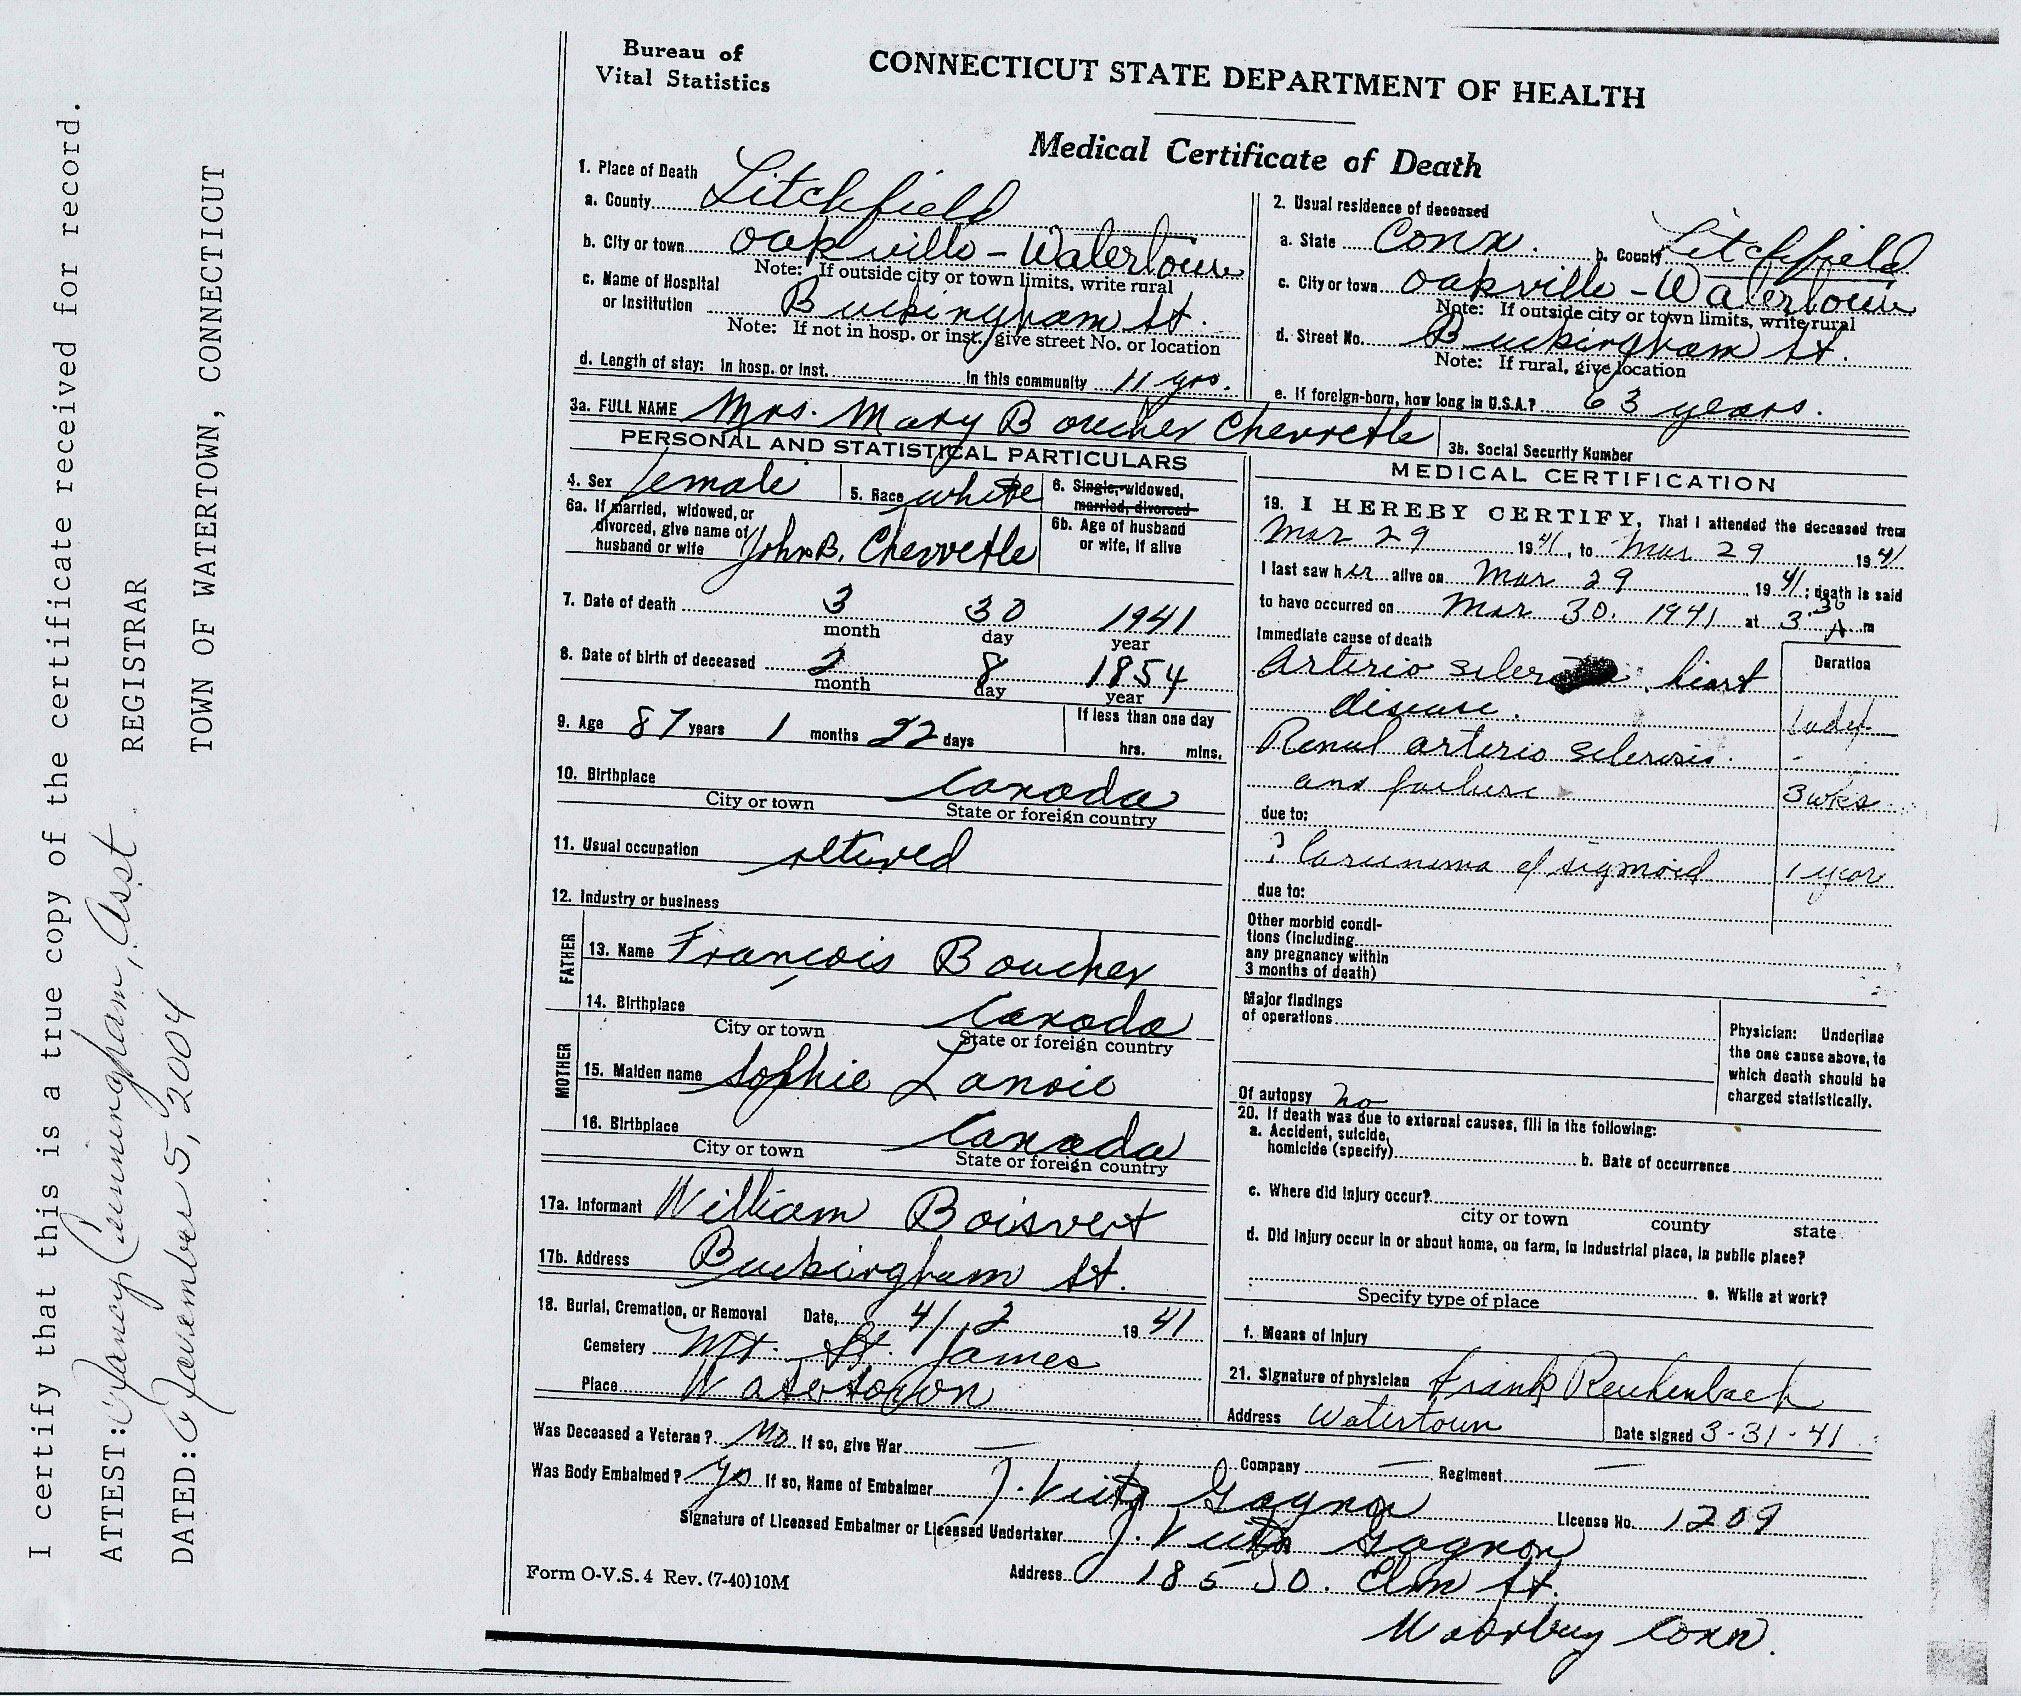 Bureau of
Vital Statistics
CONNECTICUT STATE DEPARTMENT OF HEALTH
Medical Certificate of Death
1. Place of Death
a. County Litchfield
b. City or town Oakville - Watertown
Note: If outside city or town limits, write rural
c. Name of Hospital
or Institution Buckingham St.
Note: If not in hosp. or inst., give street No. or location
d. Length of stay: In hosp. or inst. In this community 11 yrs.
2. Usual residence of deceased
a. State Conn. b. County Litchfield
c. City or town Oakville - Watertown
Note: If outside city or town limits, write rural
d. Street No. Buckingham St.
Note: If rural, give location
e. If foreign-born, how long in U.S.A.? 63 years.
3a. FULL NAME Mrs. Mary Boucher Chevrette
3b. Social Security Number
PERSONAL AND STATISTICAL PARTICULARS
4. Sex female 5. Race white 6. Single, widowed,
married, divorced
6a. If married, widowed, or
divorced, give name of
husband or wife John B. Chevrette
6b. Age of husband
or wife, if alive
7. Date of death 3 30 1941
month day year
8. Date of birth of deceased 2 8 1854
month day year
9. Age 87 years 1 months 22 days
If less than one day
hrs. mins.
10. Birthplace Canada
City or town State or foreign country
11. Usual occupation retired
12. Industry or business
FATHER
13. Name François Boucher
14. Birthplace Canada
City or town State or foreign country
MOTHER
15. Maiden name Sophie Lanoie
16. Birthplace Canada
City or town State or foreign country
17a. Informant William Boisvert
17b. Address Buckingham St.
18. Burial, Cremation, or Removal Date, 4/2 1941
Cemetery Mt. St. James
Place Watertown
MEDICAL CERTIFICATION
19. I HEREBY CERTIFY, That I attended the deceased from
Mar 29 1941, to Mar 29 1941
I last saw her alive on Mar 29 1941; death is said
to have occurred on Mar 30, 1941 at 3:30 A m
Immediate cause of death
Duration
Arterio heart
disease. Indef.
Renal arterio sclerosis
and failure 3 wks
due to:
? Carcinoma of sigmoid 1 year
due to:
Other morbid condi-
tions (including
any pregnancy within
3 months of death)
Major findings
of operations
Physician: Underline
the one cause above, to
which death should be
charged statistically.
Of autopsy no
20. If death was due to external causes, fill in the following:
a. Accident, suicide,
homicide (specify) b. Date of occurrence
c. Where did injury occur?
city or town county state
d. Did injury occur in or about home, on farm, in industrial place, in public place?
e. While at work?
Specify type of place
f. Means of injury
21. Signature of physician Frank Reichenbach
Address Watertown Date signed 3-31-41
Was Deceased a Veteran? No If so, give War — Company — Regiment —
Was Body Embalmed? Yes If so, Name of Embalmer J. Gagnon License No. 1209
Signature of Licensed Embalmer or Licensed Undertaker J. Gagnon
Form O-V.S. 4 Rev. (7-40) 10M
Address 185 So. Elm St.
Conn.
I certify that this is a true copy of the certificate received for record.
ATTEST: Nancy Cunningham, Asst. REGISTRAR
DATED: November 5, 2004 TOWN OF WATERTOWN, CONNECTICUT